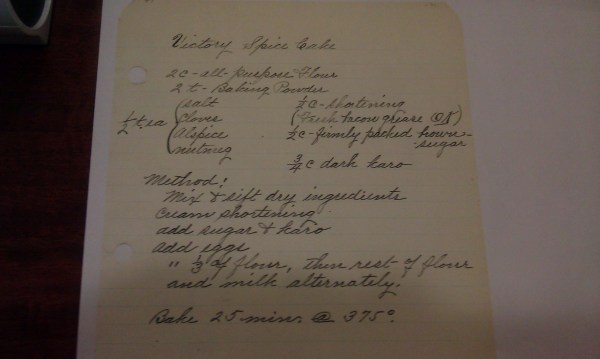 Victory Spice Cake
2 c - all-purpose Flour
2 t - Baking Powder
1/2 t. ea (salt
cloves
alspice
nutmeg
1/2 c - shortening
(Fresh bacon grease OK)
1/2 c - firmly packed brown-
-sugar
3/4 c dark karo
Method:
Mix & sift dry ingredients
cream shortening.
add sugar & karo
add eggs
" 1/3 of flour, then rest of flour
and milk alternately.
Bake 25 min. @ 375°.